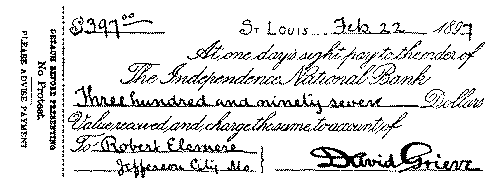 DETACH BEFORE PRESENTING
No Protest.
PLEASE ADVISE PAYMENT
$397.00 St Louis Feb 22 1897
At one day's sight pay to the order of
The Independence National Bank
Three hundred and ninety seven Dollars
Value received and charge the same to account of
To Robert Elsmere
Jefferson City Mo. } David Grieve